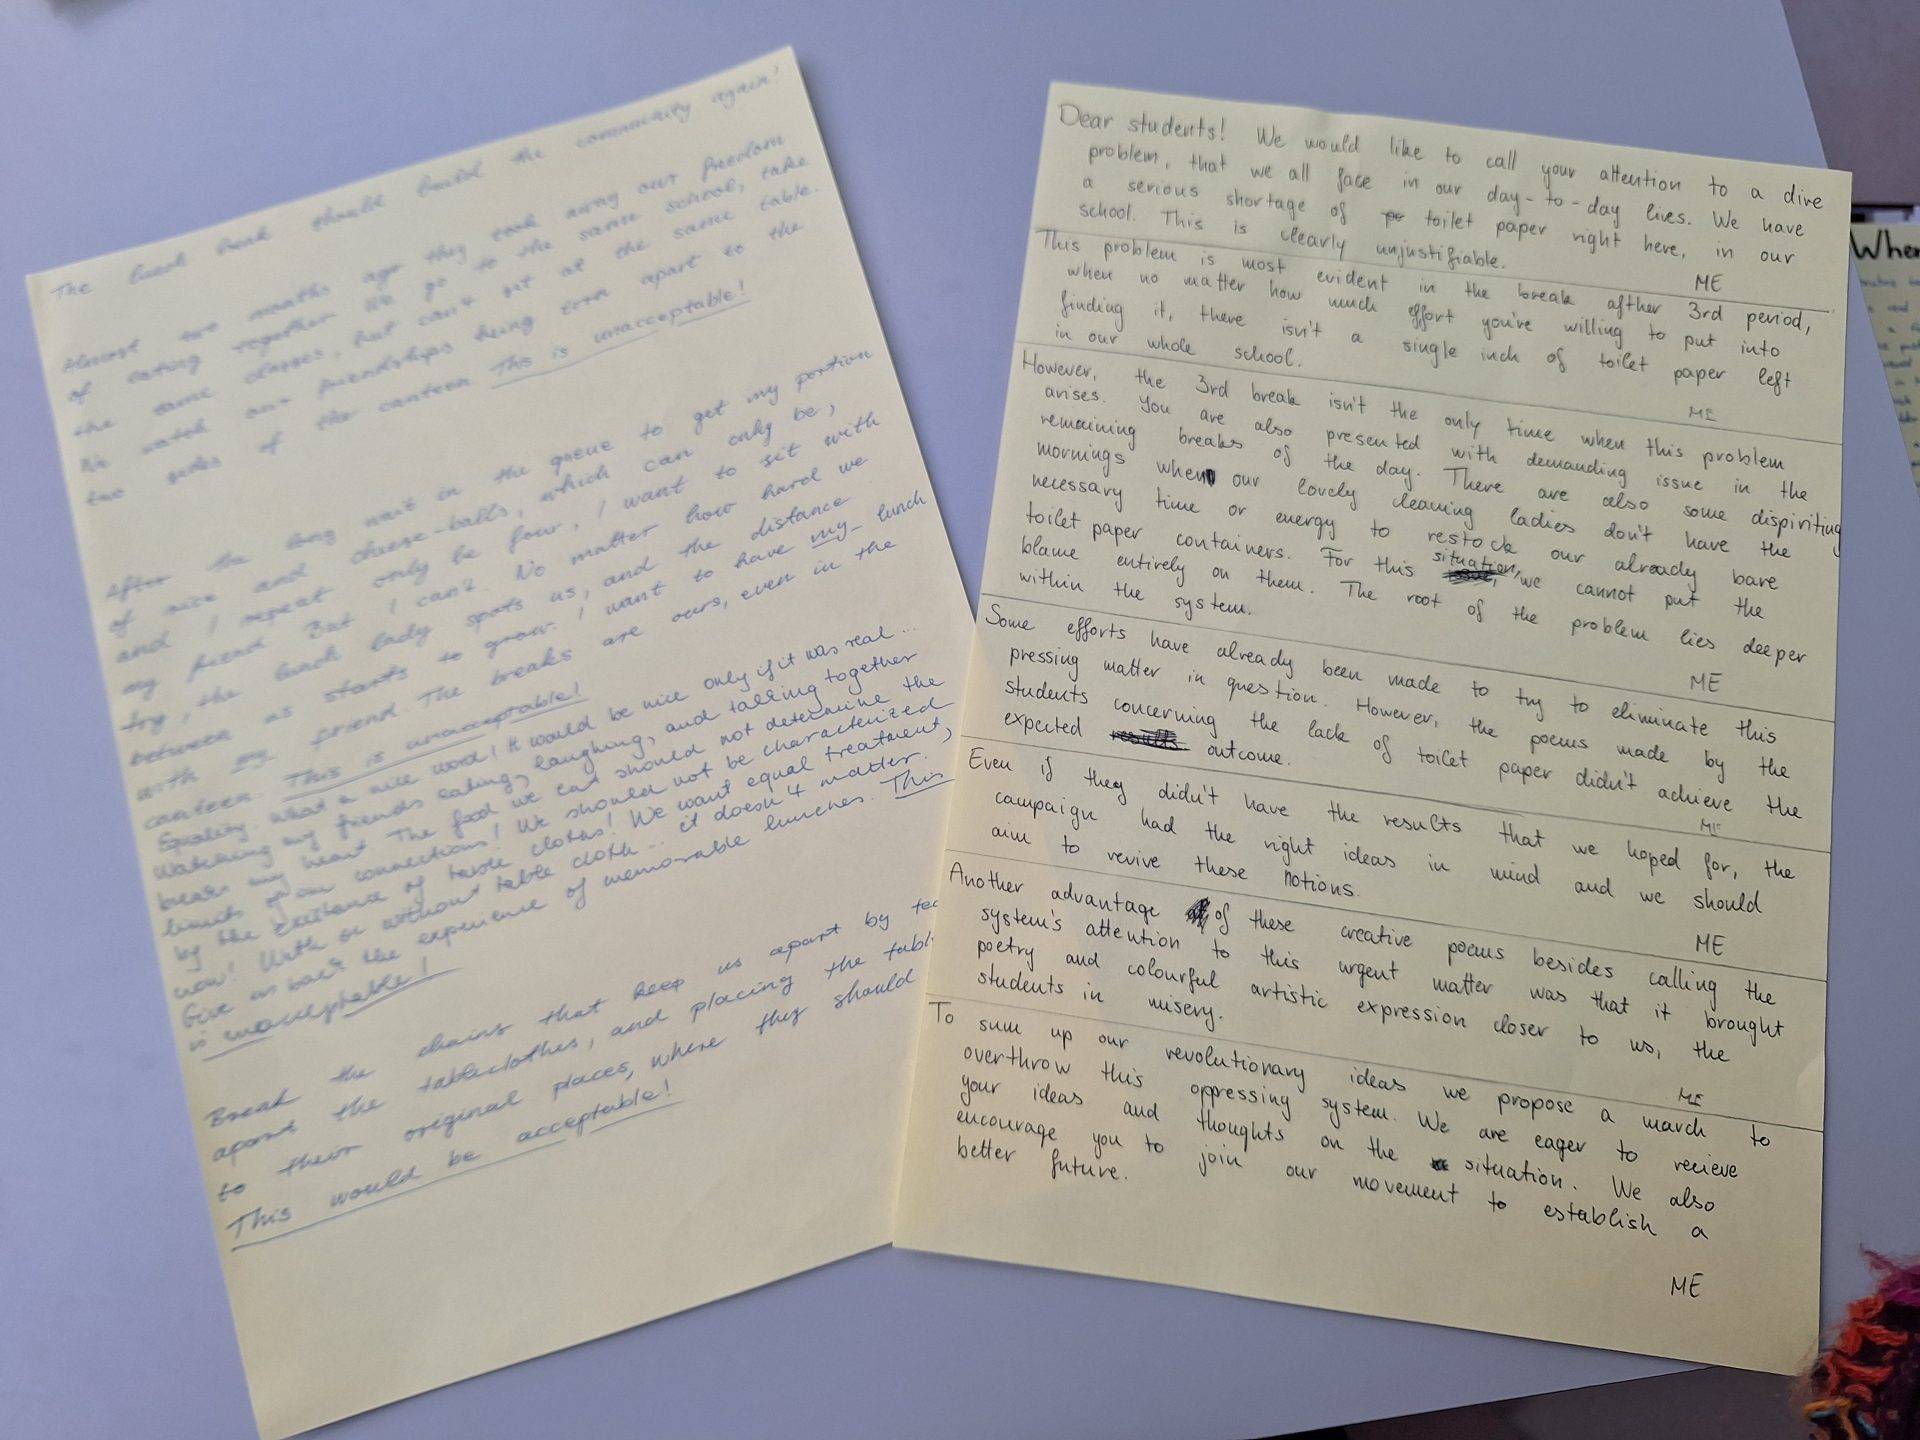 The lunch break should build the community again!
Almost two months ago they took away our freedom
of eating together. We go to the same school, take
the same classes, but can't eat at the same table.
We watch our friendships being torn apart to the
two sides of the canteen. This is unacceptable!
After the long wait in the queue to get my portion
of rice and cheese-balls, which can only be,
and I repeat only be four, I want to sit with
my friend. But I can't. No matter how hard we
try, the lunch lady spots us, and the distance
between us starts to grow. I want to have my lunch
with my friend. The breaks are ours, even in the
canteen. This is unacceptable!
Equality. What a nice word! It would be nice only if it was real...
Watching my friends eating, laughing, and talking together
breaks my heart. The food we eat should not determine the
limits of our connections! We should not be characterized
by the existence of table cloths! We want equal treatment,
now! With or without table cloth... it doesn't matter.
Give us back the experience of memorable lunches. This
is unacceptable!
Break the chains that keep us apart by
apart the tableclothes, and placing the
to their original places, where they should
This would be acceptable!
Dear students! We would like to call your attention to a dire
problem, that we all face in our day-to-day lives. We have
a serious shortage of toilet paper right here, in our
school. This is clearly unjustifiable.
ME
This problem is most evident in the break afther 3rd period,
when no matter how much effort you're willing to put into
finding it, there isn't a single inch of toilet paper left
in our whole school.
ME
However, the 3rd break isn't the only time when this problem
arises. You are also presented with demanding issue in the
remaining breaks of the day. There are also some dispiriting
mornings when our lovely cleaning ladies don't have the
necessary time or energy to restock our already bare
toilet paper containers. For this situation, we cannot put the
blame entirely on them. The root of the problem lies deeper
within the system.
ME
Some efforts have already been made to try to eliminate this
pressing matter in question. However, the poems made by the
students concerning the lack of toilet paper didn't achieve the
expected results outcome.
ME
Even if they didn't have the results that we hoped for, the
campaign had the right ideas in mind and we should
aim to revive these notions.
ME
Another advantage of these creative poems besides calling the
system's attention to this urgent matter was that it brought
poetry and colourful artistic expression closer to us, the
students in misery.
ME
To sum up our revolutionary ideas we propose a march to
overthrow this oppressing system. We are eager to recieve
your ideas and thoughts on the situation. We also
encourage you to join our movement to establish a
better future.
ME
When